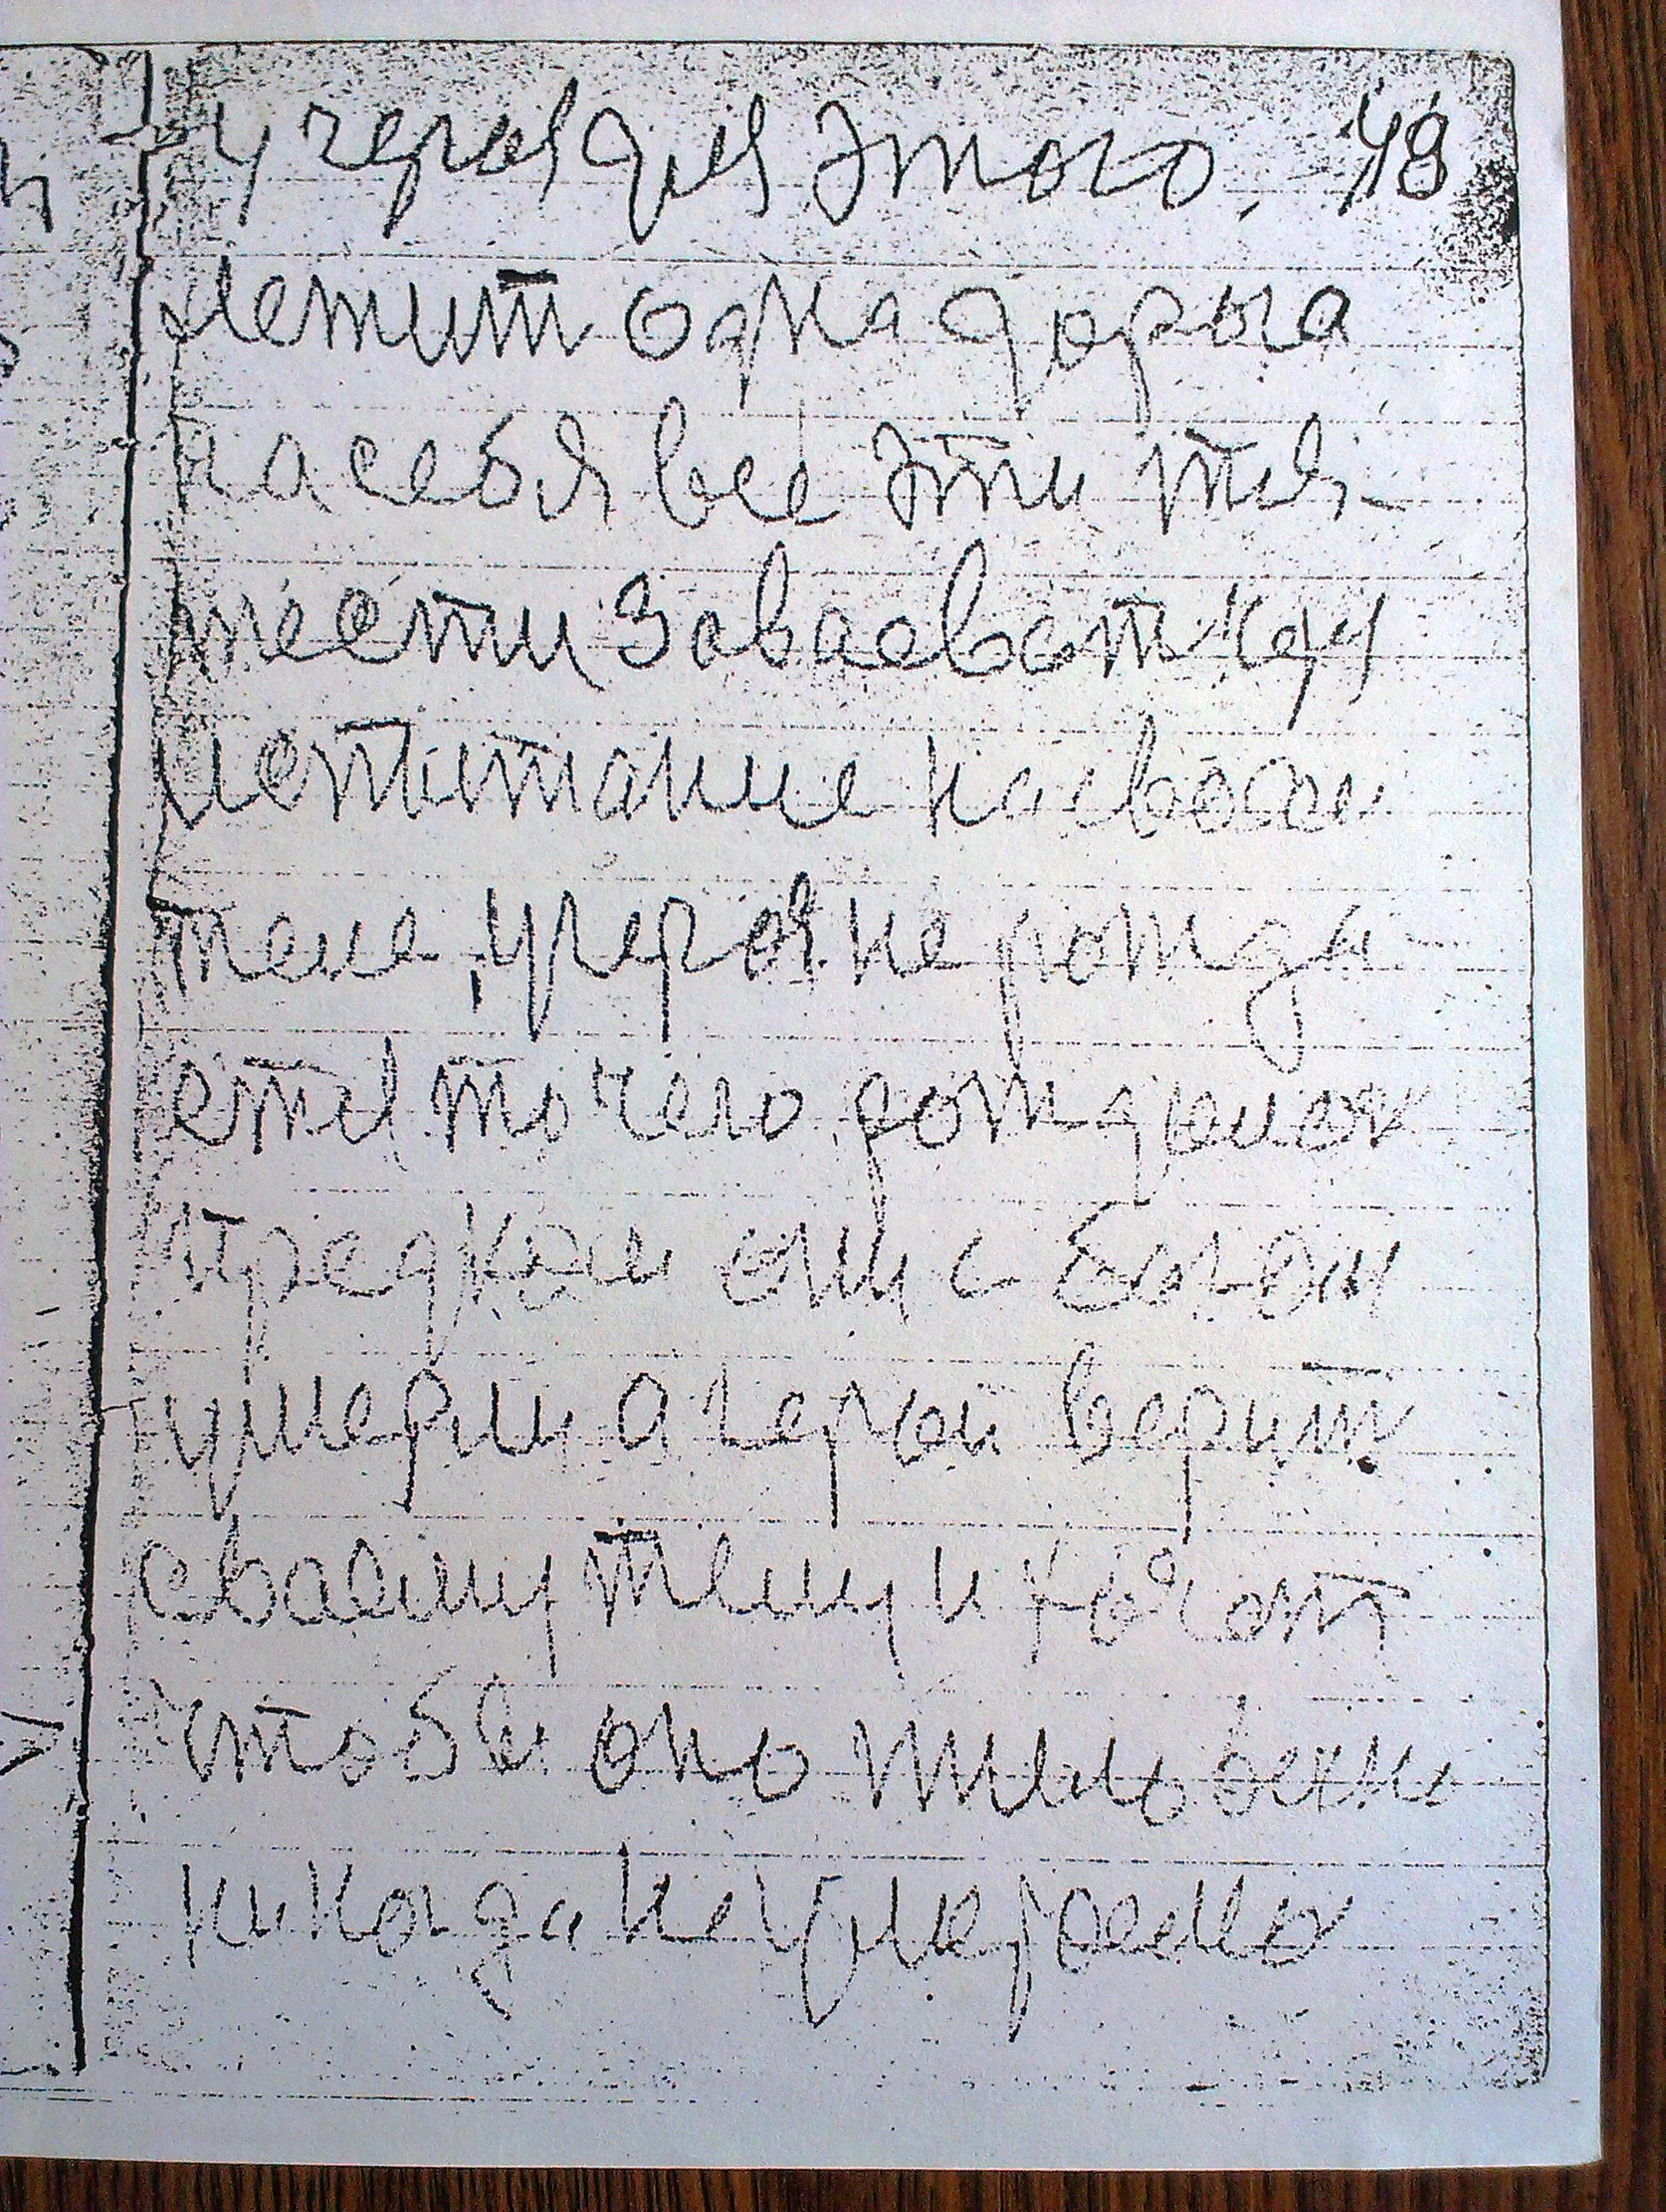 у героя для этого 48
лежит одна дорога
на себя все эти тя-
жести Заваевать и ту
испытание на своем
теле, у героя не рожда
ется то чего, рождалось
предками они с Богом
умерли а герой верит
своему телу и хочет
чтобы оно жило вечно
никогда не умерало